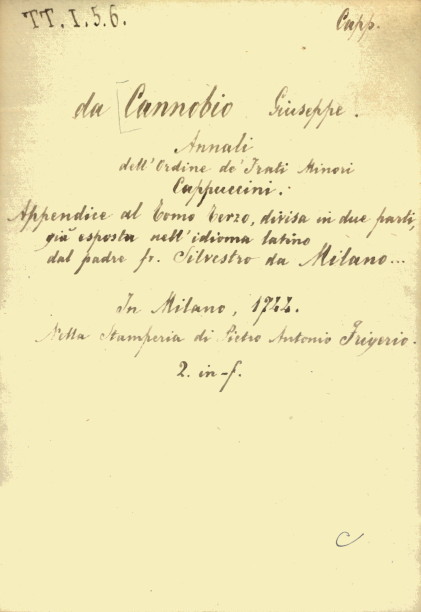 TT. I. 5. 6.
Capp.
da [Cannobio Giuseppe.
Annali
dell'Ordine de' Frati Minori
Cappuccini.
Appendice al Tomo Terzo, divisa in due parti,
già esposta nell'idioma latino
dal padre fr. Silvestro da Milano...
In Milano, 1744.
Nella Stamperia di Pietro Antonio Frigerio.
2. in-f.
C